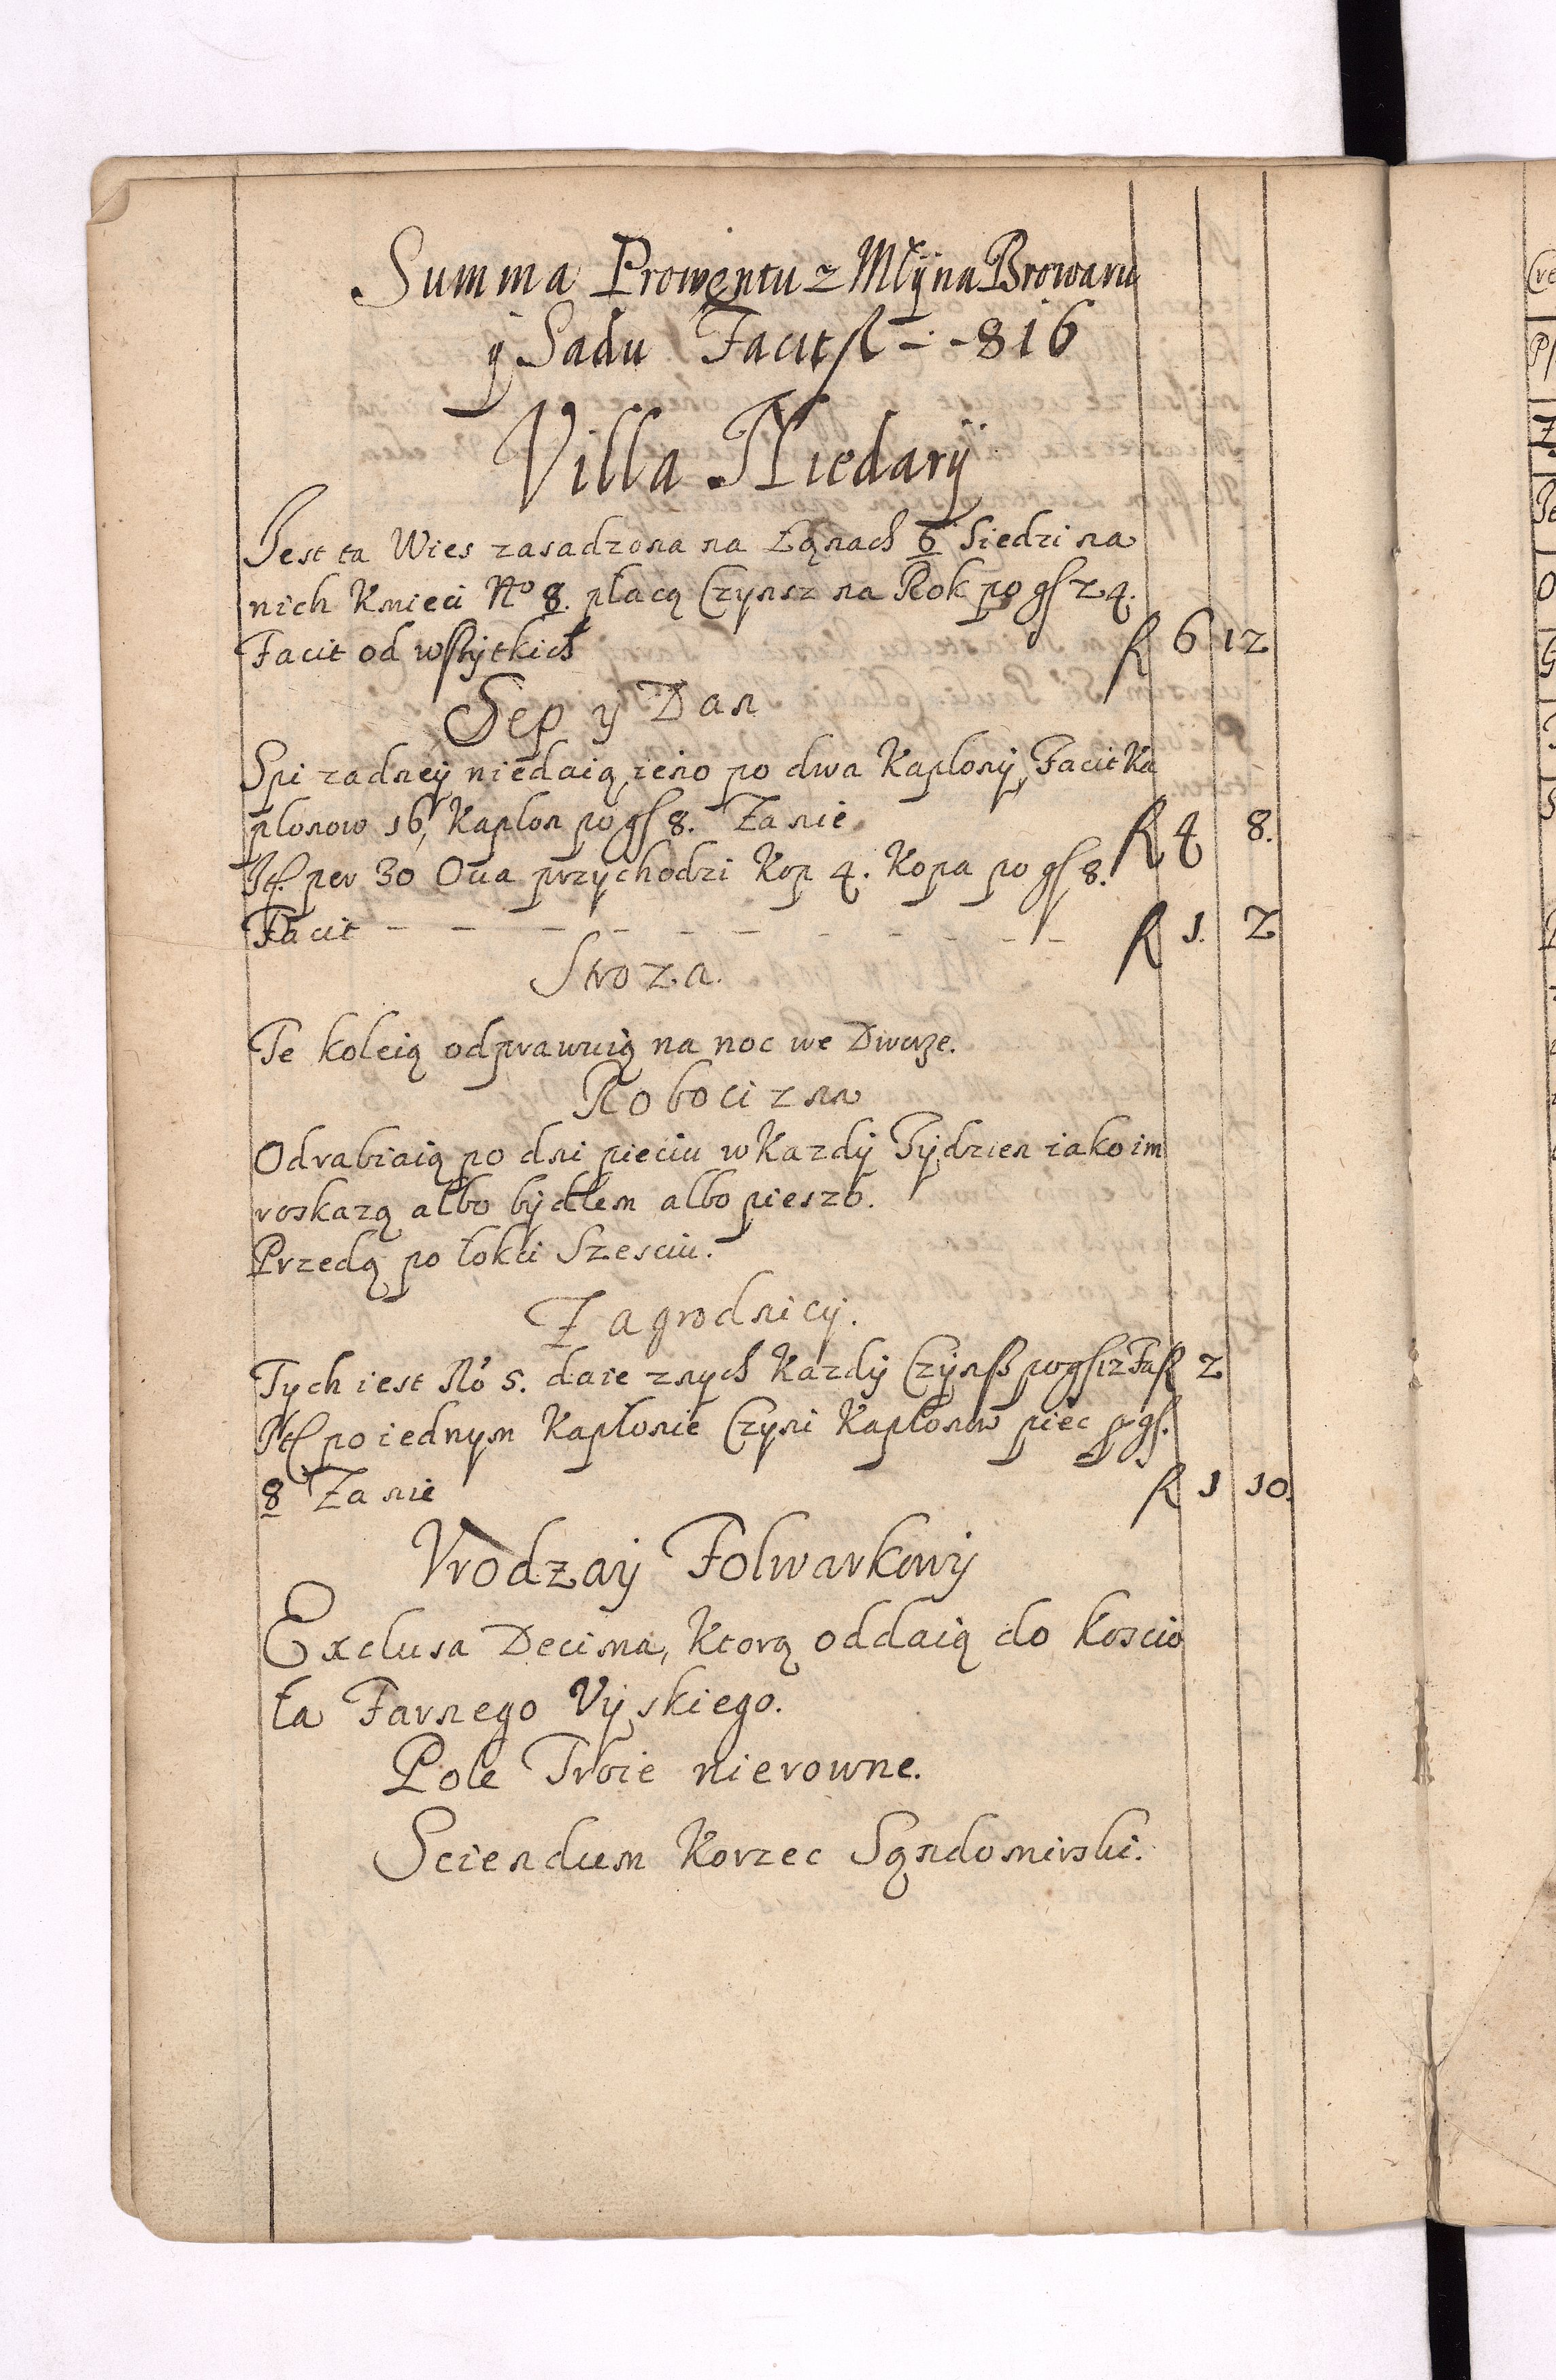 Summa Prowentu z Młÿna Browaru
ÿ Sadu Facit fl - - 816
Villa Niedarÿ
Jest ta Wies zasadzona na Łąnach 6 Siedzi na
nich Kmieci No 8. płacą Czynsz na Rok po gſ 24.
Facit od wſzÿtkich fl 6 12
Sep ÿ Dan
Spi zadneÿ niedaią ieno po dwa Kaplonÿ, Facit Ka
plonow 16, Kaplon po gſ 8. Za nie fl 4 8.
Itſ. per 30 Oua przychodzi Kop 4. Kopa po gſ 8.
Facit - - - - - - - - - - fl 1. 2
Stroza.
Te koleią odprawuią na noc we Dworze.
Robocizna
Odrabiaią po dni pieciu w Kazdÿ Tÿdzien iako im
roskazą albo bÿdłem albo pieszo.
Przedą po łokci Szesciu.
Zagrodnicÿ.
Tych iest No 5. daie znych Kazdÿ Czÿnſz po gſ 12 Fa fl 2
Itſ po iednym Kapłonie Czyni Kapłonow piec po gſ.
8 Za nie fl 1 10.
Vrodzaÿ Folwarkowÿ
Exclusa Decima, Ktorą oddaią do koscio
ła Farnego Vÿskiego.
Pole Troie nierowne.
Sciendum Korzec Sąndomirski.